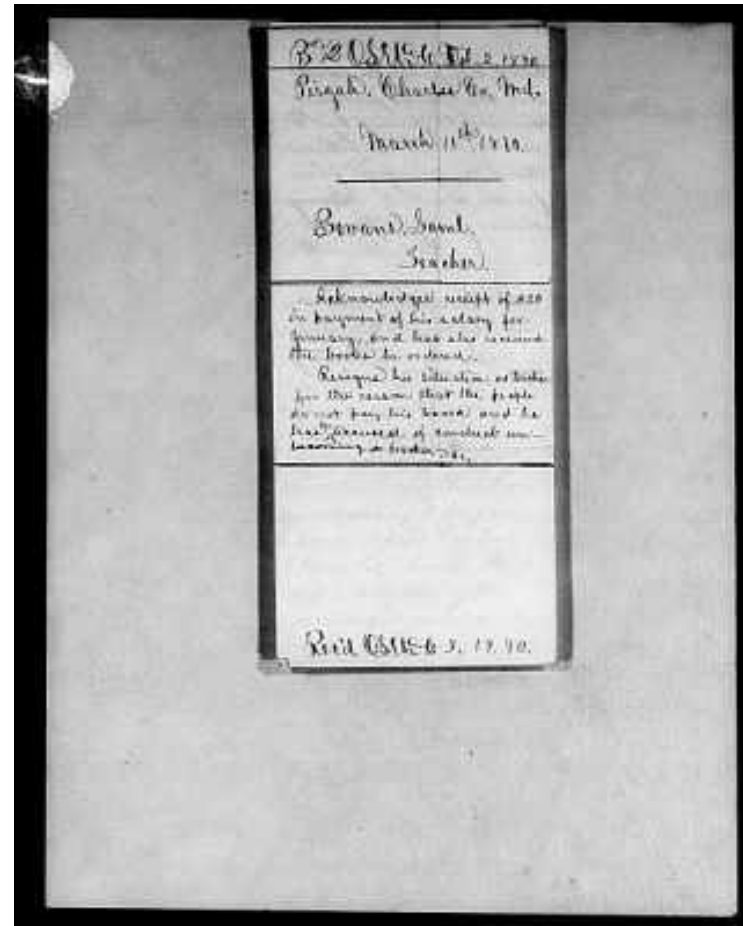 Pisgah, Charles Co, Md.
March 11th 1870.
Saml.
Teacher.
Acknowledges receipt of $20
in payment of his salary for
January, and has also received
the books he ordered.
Resigns his situation as teacher
for the reason that the people
do not pay his board and he
has accused of conduct un-
becoming a teacher &c.
Rec'd 3. 17. 70.